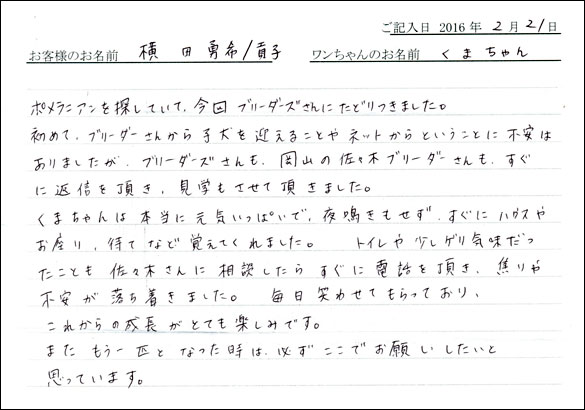 ご記入日 2016年 2月 21日
お客様のお名前 横田勇希/貴子 ワンちゃんのお名前 くまちゃん
ポメラニアンを探していて、今回ブリーダーズさんにたどりつきました。
初めて、ブリーダーさんから子犬を迎えることやネットからということに不安は
ありましたが、ブリーダーズさんも、岡山の佐々木ブリーダーさんも、すぐ
に返信を頂き、見学もさせて頂きました。
くまちゃんは本当に元気いっぱいで、夜鳴きもせず、すぐにハウスや
お座り、待てなど覚えてくれました。 トイレや少しゲリ気味だっ
たことも佐々木さんに相談したらすぐに電話を頂き、焦りや
不安が落ち着きました。 毎日笑わせてもらっており、
これからの成長がとても楽しみです。
また もう一匹となった時は、必ずここでお願いしたいと
思っています。